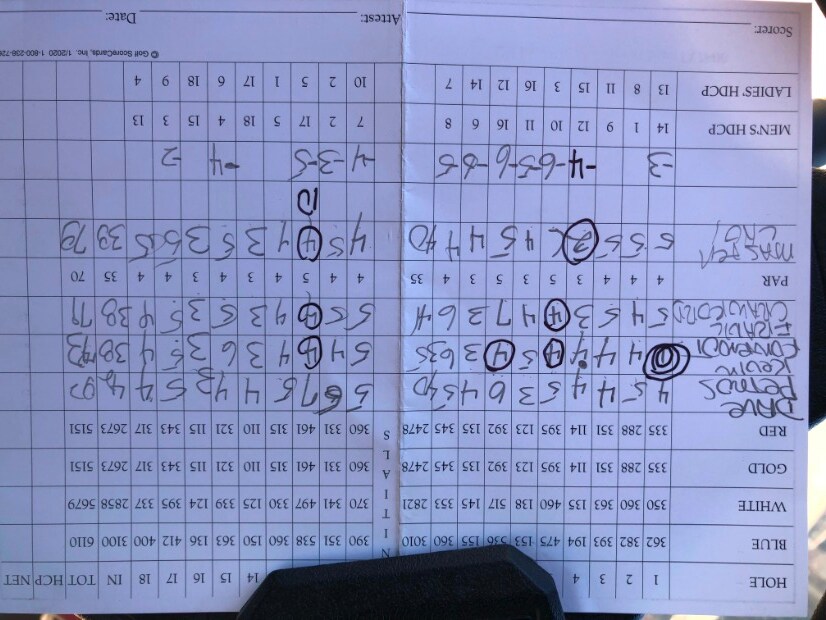 HOLE 1 2 3 4 14 15 16 17 18 IN TOT HCP NET
BLUE 362 382 393 194 475 153 536 155 360 3010 N 390 351 538 360 150 363 136 412 400 3100 6110
WHITE 350 360 363 135 460 138 517 145 353 2821 I T 370 341 497 330 125 339 124 395 337 2858 5679
GOLD 335 288 351 114 395 123 392 135 345 2478 I A 360 331 461 315 110 321 115 343 317 2673 5151
RED 335 288 351 114 395 123 392 135 345 2478 L S 360 331 461 315 110 321 115 343 317 2673 5151
DAVE PETROS 4 5 4 4 5 3 6 4 5 40 5 6 7 5 4 4 3 5 4
KEVIN 4 4 4 4 5 4 3 6 35 5 4 4 4 3 6 3 5 4 38 73
CRAWFORD 5 4 5 3 4 4 7 3 6 41 5 5 4 4 3 5 3 5 4 38 79
PAR 4 4 4 3 5 3 5 3 4 35 4 4 5 4 3 4 3 4 4 35 70
MASTER 5 5 5 2 4 5 4 4 40 4 5 4 4 3 5 3 5 39 79
10
-3 -4 -6 -5 -6 -5 -4 -3 -5 -4 -2
MEN'S HDCP 14 1 9 12 10 11 16 6 8 7 2 17 5 18 4 15 3 13
LADIES' HDCP 13 8 11 15 3 16 12 14 7 10 2 5 1 17 6 18 9 4
© Golf ScoreCards, Inc. 1/2020 1-800-238-726
Scorer: Attest: Date: